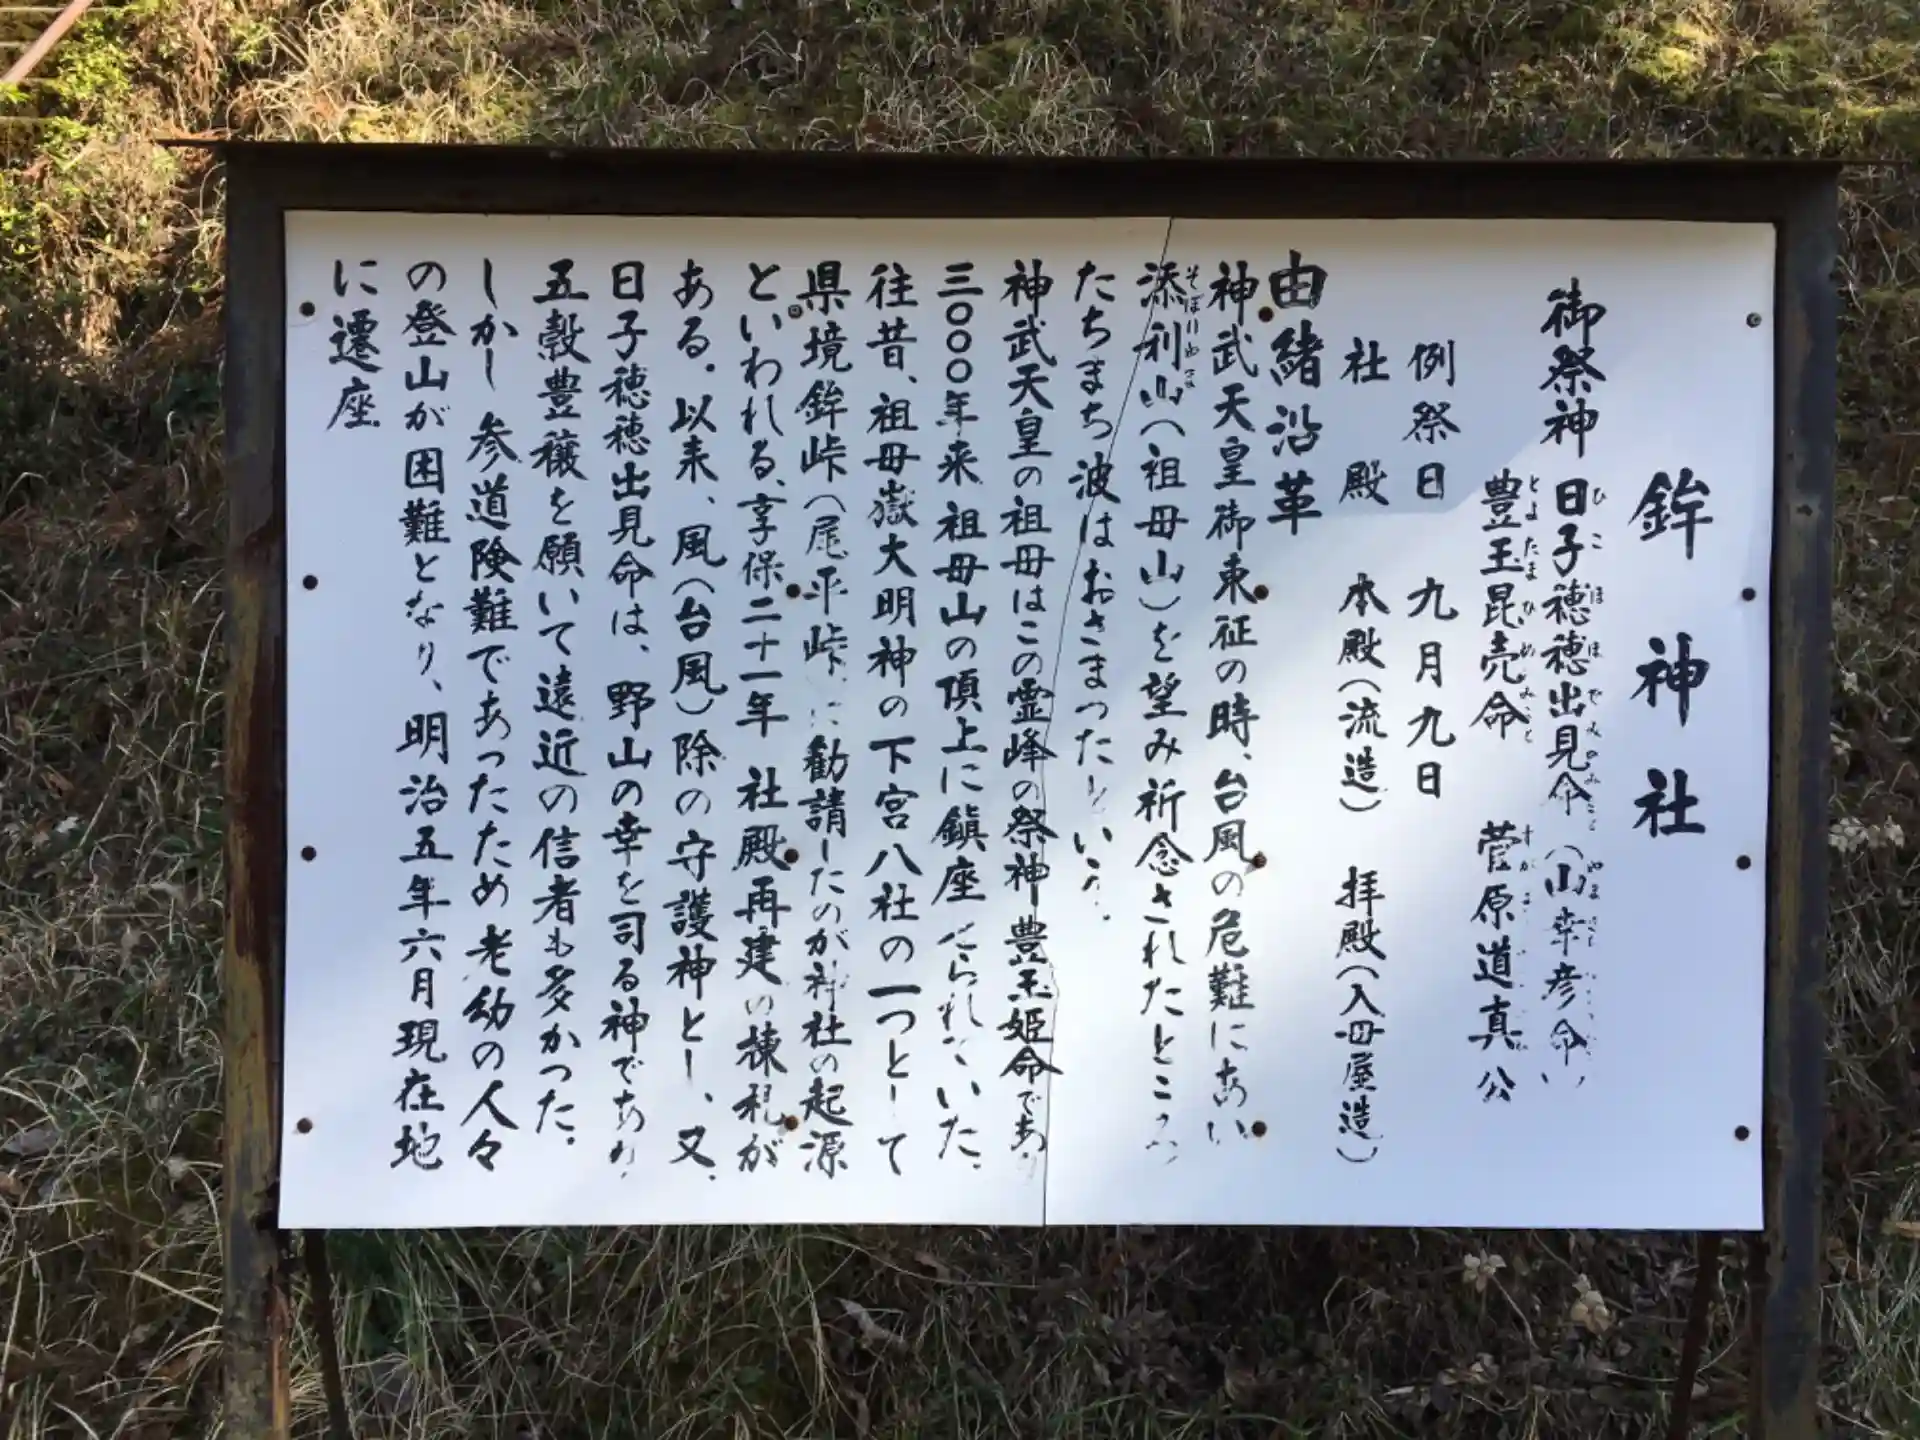 鉾神社
御祭神 日子穂穂出見命(山幸彦命)
豊玉昆売命 菅原道真公
例祭日 九月九日
社殿 本殿(流造) 拝殿(入母屋造)
由緒沿革
神武天皇御東征の時、台風の危難にあい
添利山(祖母山)を望み祈念されたところ
たちまち波はおさまったという。
神武天皇の祖母はこの霊峰の祭神豊玉姫命であり
三〇〇〇年来祖母山の頂上に鎮座せられていた。
往昔、祖母嶽大明神の下宮八社の一つとして
県境鉾峠(尾平峠)に勧請したのが神社の起源
といわれる、享保二十一年 社殿再建の棟札が
ある。以来、風(台風)除の守護神とし、又、
日子穂穂出見命は、野山の幸を司る神であり
五穀豊穣を願いて遠近の信者も多かった。
しかし参道険難であったため老幼の人々
の登山が困難となり、明治五年六月現在地
に遷座